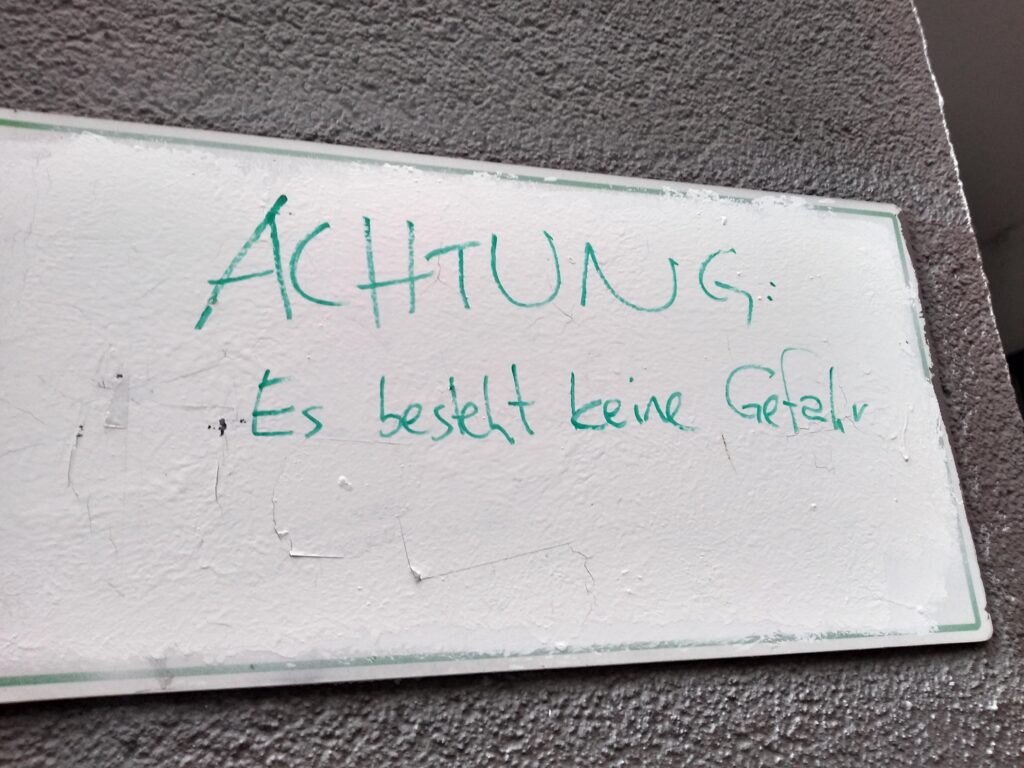 ACHTUNG:
Es besteht keine Gefahr